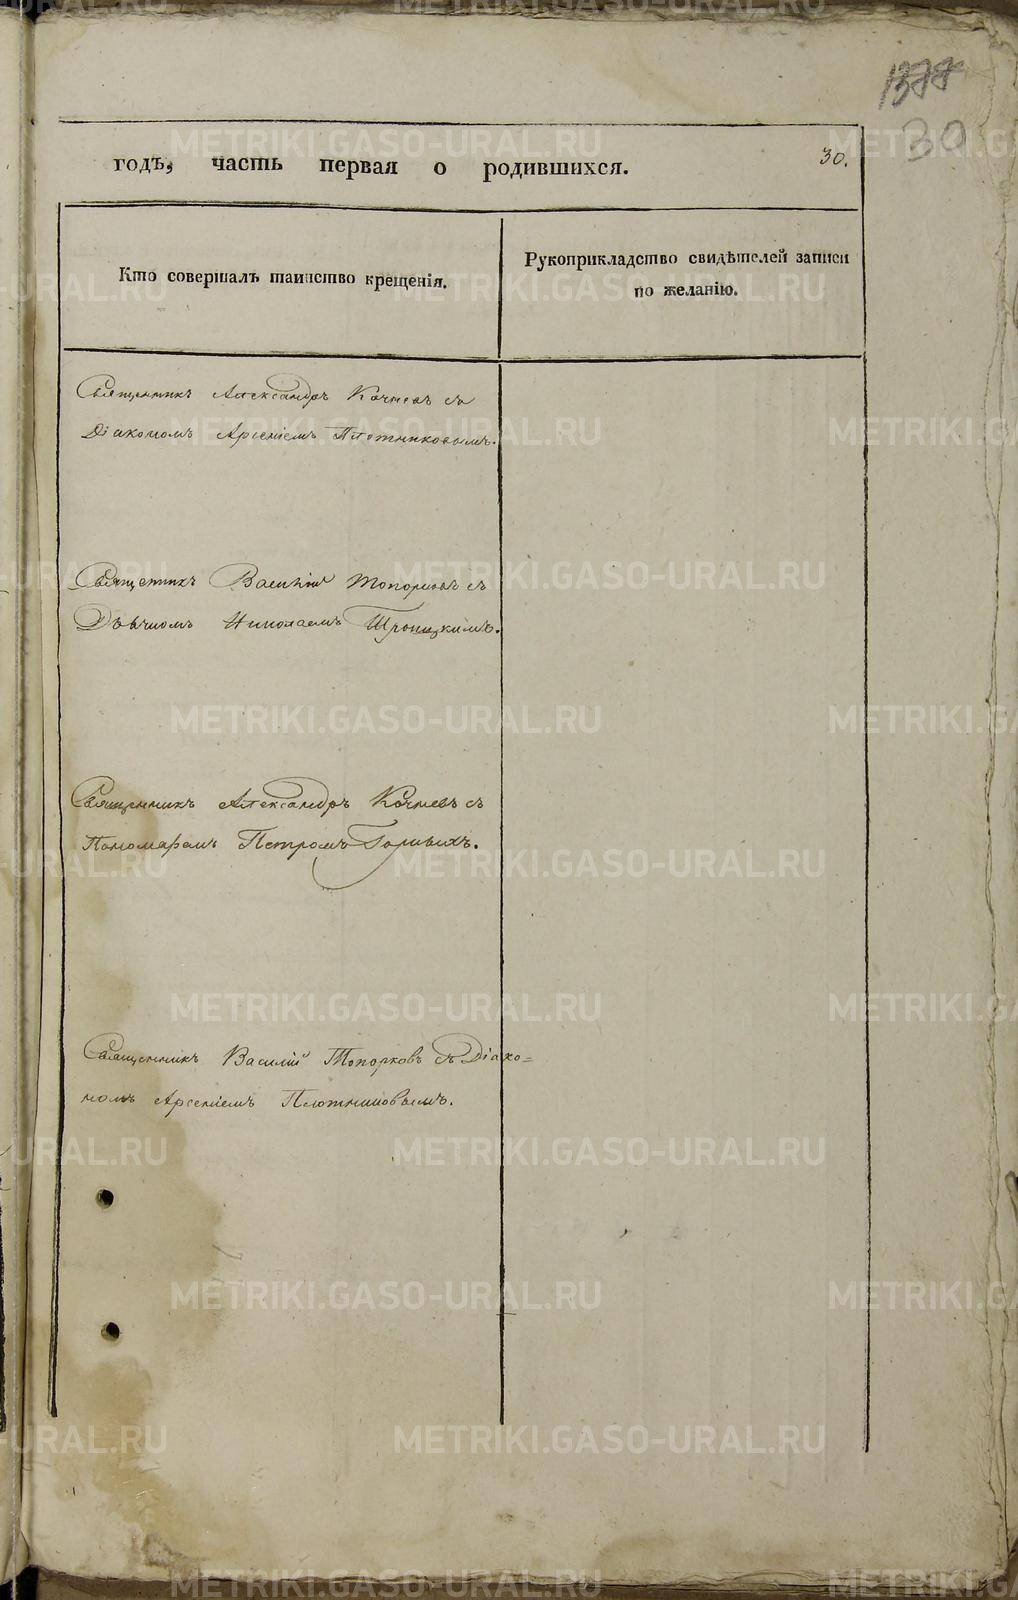 1377
30
годъ, часть первая о родившихся. 30.
Кто совершалъ таинство крещенія.
Рукоприкладство свидѣтелей записи
по желанію.
Священникъ Александръ Кочневъ съ
Діакономъ Арсеніемъ Плотниковымъ.
Священникъ Василій Топорковъ съ
Дьячкомъ Николаемъ Троицкимъ.
Священникъ Александръ Кочневъ съ
Пономаремъ Петромъ
Священникъ Василій Топорковъ съ Діако=
номъ Арсеніемъ Плотниковымъ.
METRIKI.GASO-URAL.RU